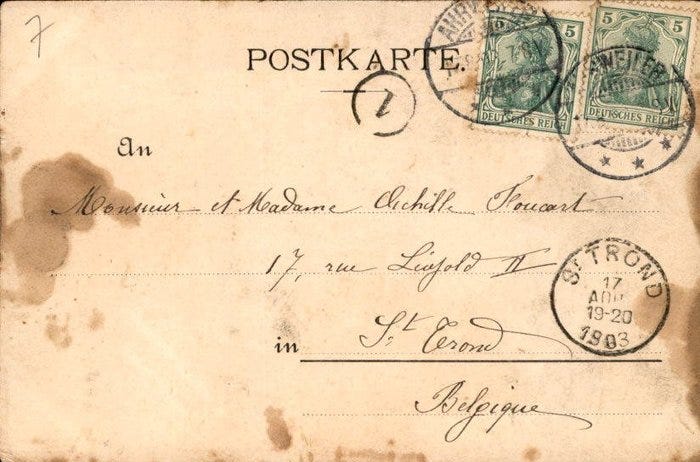 7
POSTKARTE.
5 5
DEUTSCHES REICH
5
DEUTSCHES REICH
AHRWEILER
1
An
Monsieur et Madame Achille Foucart
17, rue Léopold II
in St Trond
Belgique
ST TROND
17
19-20
1903